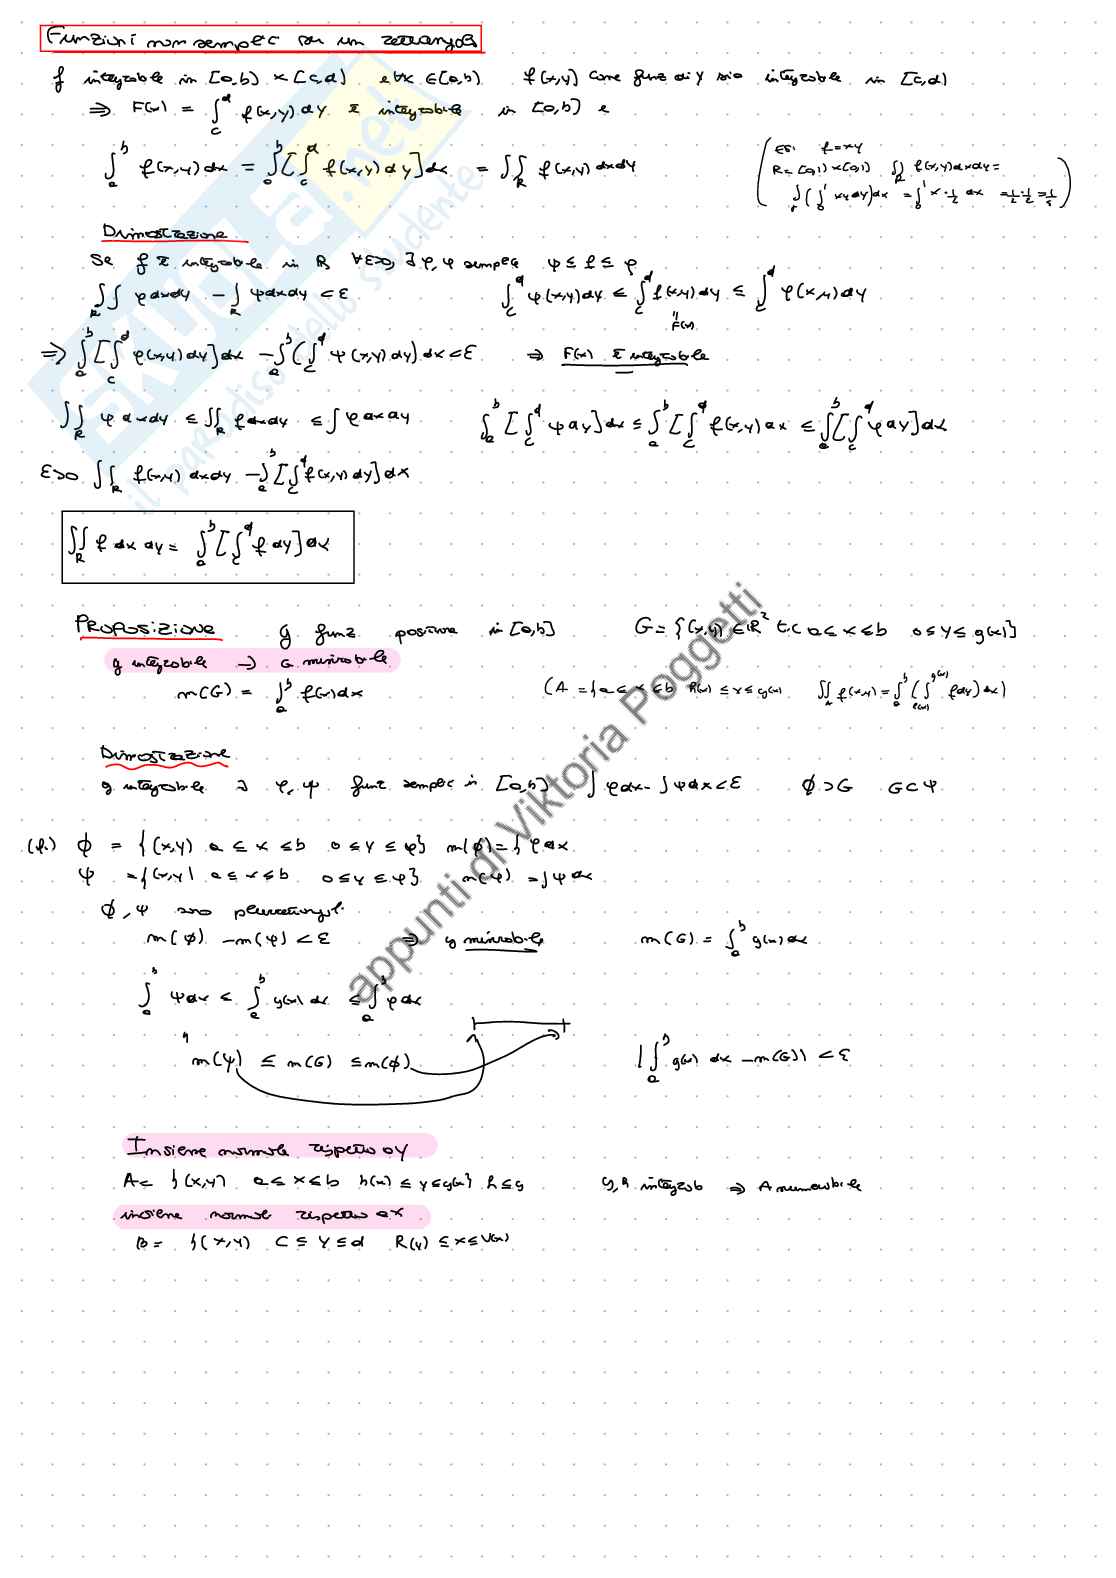 Funzioni non semplici su un rettangolo
f integrabile in [a,b) × [c,d) e ∀x ∈ [a,b) f(x,y) come funz di y sia integrabile in [c,d)
⇒ F(x) = ∫_c^d f(x,y) dy è integrabile in [a,b] e
∫_a^b f(x,y) dx = ∫_a^b [∫_c^d f(x,y) dy] dx = ∬_R f(x,y) dxdy
(ES: f = xy
R = [0,1) × [0,1) ∬_R f(x,y) dxdy =
∫ (∫_0^1 xy dy) dx = ∫_0^1 x · 1/2 dx = 1/2 · 1/2 = 1/4)
Dimostrazione
Se f è integrabile in R, ∀ε>0, ∃ φ, ψ semplici ψ ≤ f ≤ φ
∬_R φ dxdy - ∫_R ψ dxdy < ε ∫_c^d ψ(x,y) dy ≤ ∫_c^d f(x,y) dy ≤ ∫_c^d φ(x,y) dy
" F(x)
⇒ ∫_a^b [∫_c^d φ(x,y) dy] dx - ∫_a^b (∫_c^d ψ(x,y) dy) dx < ε ⇒ F(x) è integrabile
∬_R ψ dxdy ≤ ∬_R f dxdy ≤ ∫ φ dx dy ∫_a^b [∫_c^d ψ dy] dx ≤ ∫_a^b [∫_c^d f(x,y) dx ≤ ∫_a^b [∫_c^d φ dy] dx
ε>0 ∬_R f(x,y) dxdy - ∫_a^b [∫_c^d f(x,y) dy] dx
∬_R f dx dy = ∫_a^b [∫_c^d f dy] dx
PROPOSIZIONE g funz positiva in [a,b] G = {(x,y) ∈ ℝ² t.c a ≤ x ≤ b 0 ≤ y ≤ g(x)}
g integrabile → G misurabile
m(G) = ∫_a^b f(x) dx (A = {a ≤ x ≤ b h(x) ≤ y ≤ g(x) ∬_A f(x,y) = ∫_a^b (∫_{h(x)}^{g(x)} f dy) dx)
Dimostrazione
g integrabile ∃ φ, ψ funz semplici in [a,b) ∫ φ dx - ∫ ψ dx < ε ϕ ⊃ G G ⊂ Ψ
ϕ = {(x,y) a ≤ x ≤ b 0 ≤ y ≤ φ} m(ϕ) = ∫ φ dx
Ψ = {(x,y) a ≤ x ≤ b 0 ≤ y ≤ ψ} m(Ψ) = ∫ ψ dx
ϕ, Ψ sono plurirettangoli
m(ϕ) - m(Ψ) < ε ⇒ g misurabile m(G) = ∫_a^b g(x) dx
∫_a^b ψ dx ≤ ∫_a^b g(x) dx ≤ ∫_a^b φ dx
" m(Ψ) ≤ m(G) ≤ m(ϕ) |∫_a^b g(x) dx - m(G)) < ε
Insieme normale rispetto a y
A = {(x,y) a ≤ x ≤ b h(x) ≤ y ≤ g(x)} h ≤ g g, h integrab ⇒ A misurabile
insieme normale rispetto a x
B = {(x,y) c ≤ y ≤ d R(y) ≤ x ≤ V(x)
skuola.net
il paradiso dello studente
appunti di Viktoria Poggetti